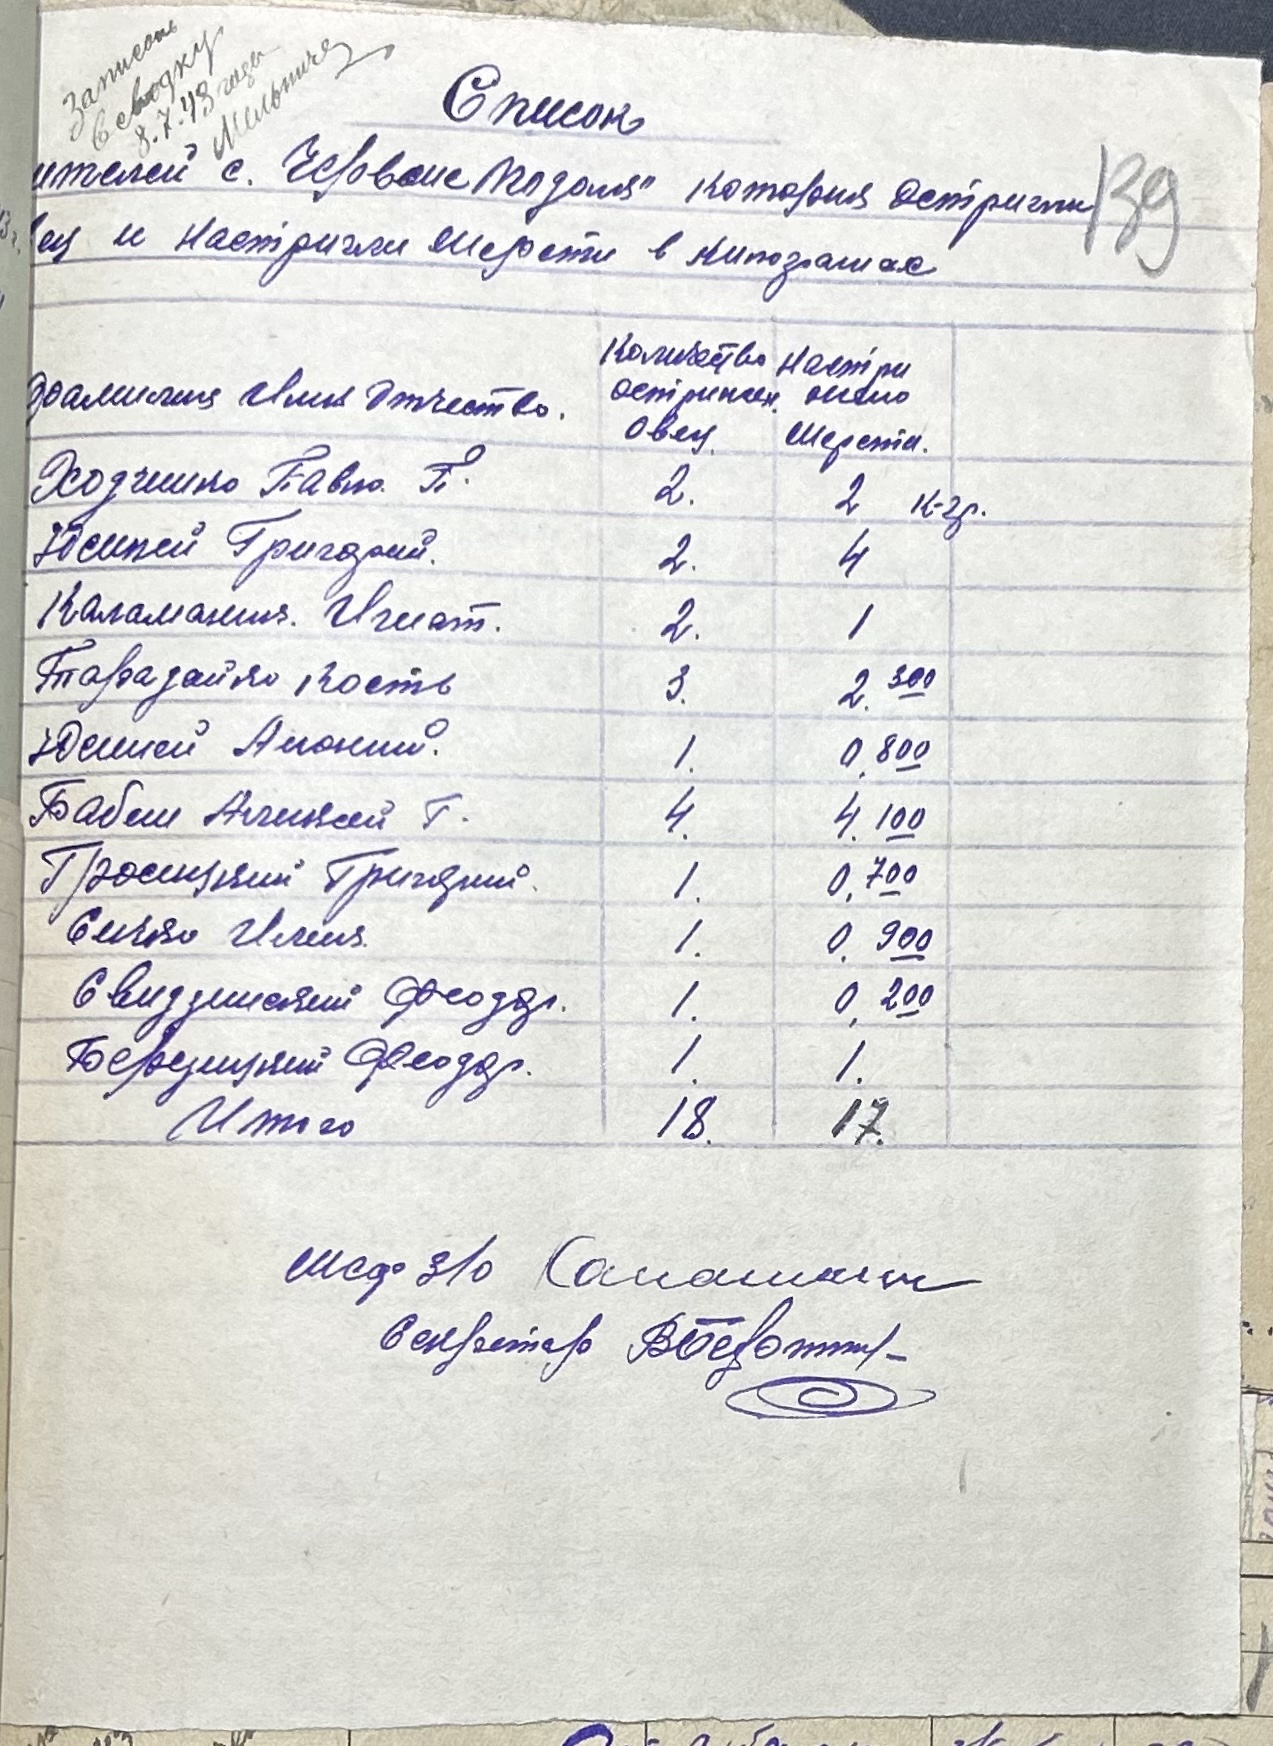 Записать
в сводку
8.7.43 года
Мельнича
Список
139
ителей с. "Червоне Подоля" котория остригли
вец и настригли шерсти в килограмах
Фамилия Имя Отчество.
Количество
острижен.
Овец.
Настри
жено
Шерсти.
Ходченко Павло. П. 2. 2 к-гр.
Юсипей Григорий. 2. 4
Каламания. Игнат. 2. 1
Парадайко Кость 3. 2.300
Юсипей Антоний. 1. 0,800
Бабеш Алексей Г. 4. 4.100
Григорий. 1. 0,700
Сичко Илия. 1. 0,900
Свидзинский Феодор. 1. 0,200
Бержицкий Феодор. 1. 1.
Итого 18. 17.
Шеф з/о
Секретар